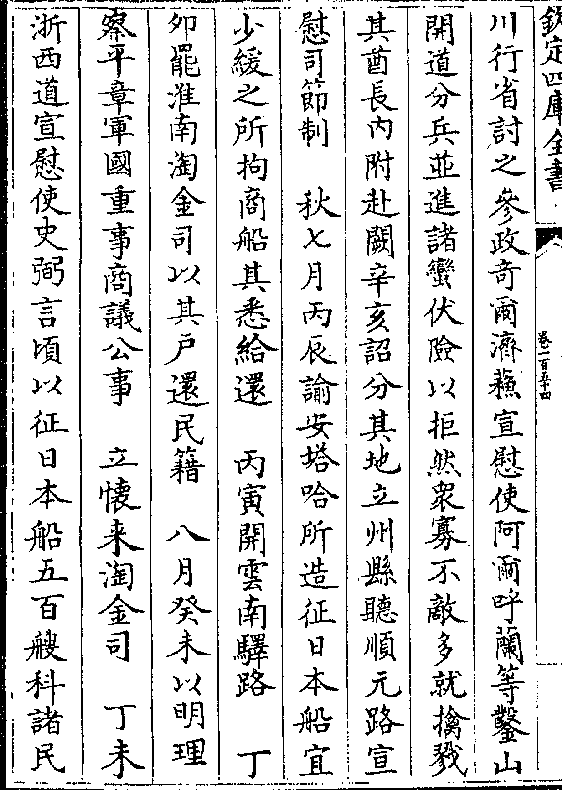 欽定四庫全書
卷一百五十四
川行省討之參政奇爾濟蘓宣慰使阿爾呼蘭等鑿山
開道分兵並進諸蠻伏險以拒然衆寡不敵多就擒戮
其酋長内附赴闕辛亥詔分其地立州縣聽順元路宣
慰司節制　秋七月丙辰諭安塔哈所造征日本船宜
少緩之所拘商船其悉給還　丙寅開雲南驛路　丁
卯罷淮南淘金司以其戸還民籍　八月癸未以明理
察平章軍國重事商議公事　立懷来淘金司　丁未
浙西道宣慰使史弼言頃以征日本船五百艘科諸民